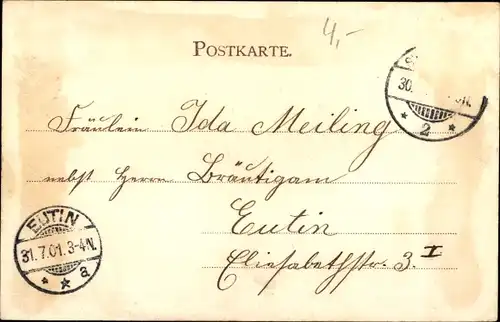 4,-
POSTKARTE.
30.
* 2 *
Fräulein Ida Meiling
nebst Herrn Bräutigam
Eutin
Elisabethstr. 3 I
EUTIN
31.7.01.3-4N.
* * a